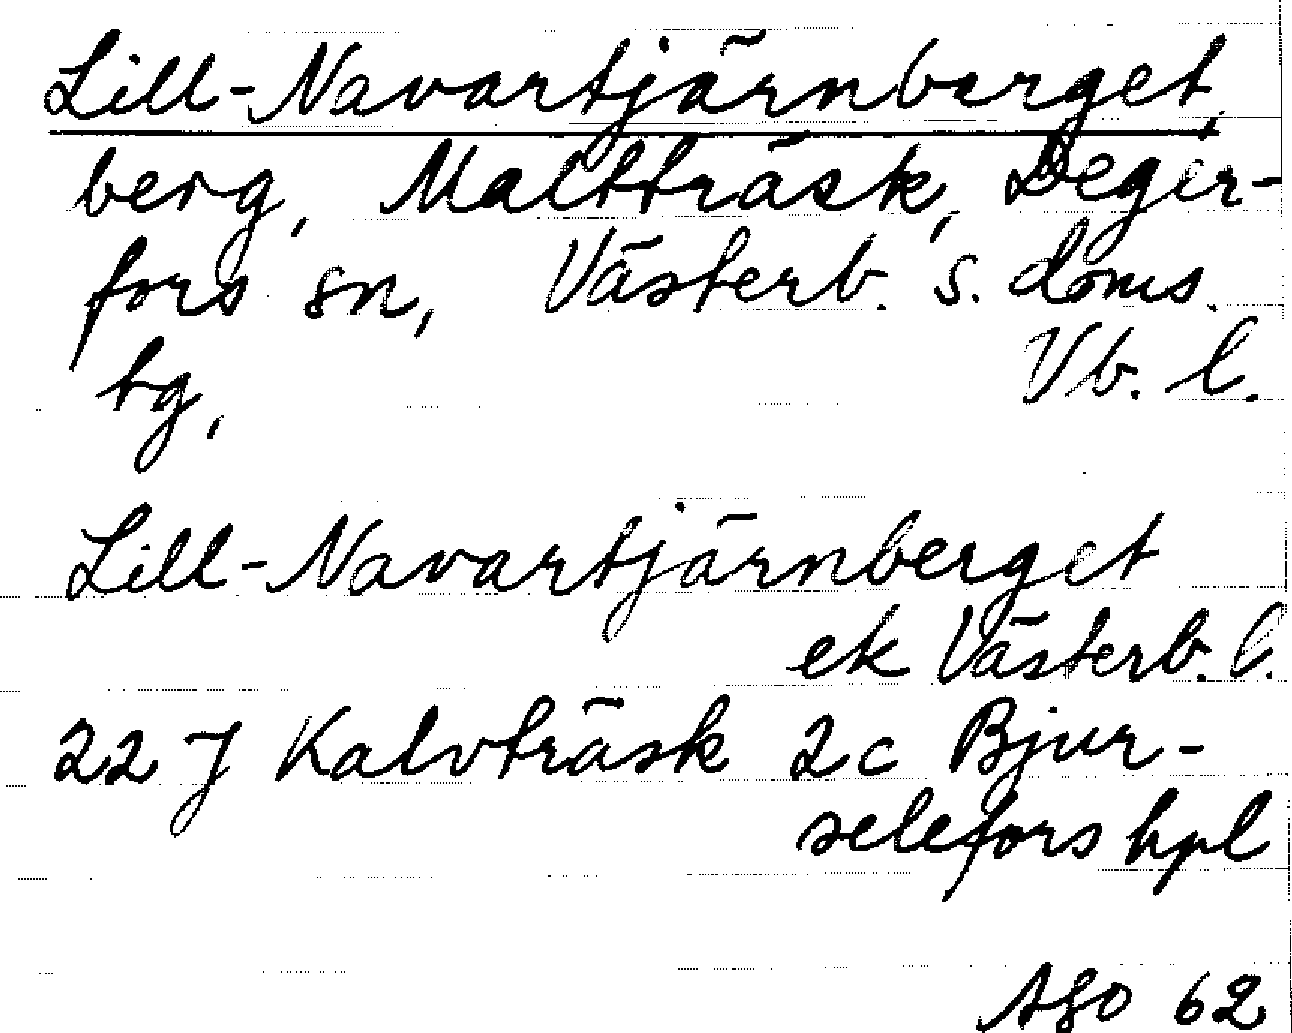 Lill-Navartjärnberget,
berg, Maltträsk, Deger-
fors sn, Västerb. s. doms.
tg,
Vb. l.
Lill-Navartjärnberget
ek Västerb. l.
22 J Kalvträsk 2c Bjur-
selefors hpl
ÅGO 62